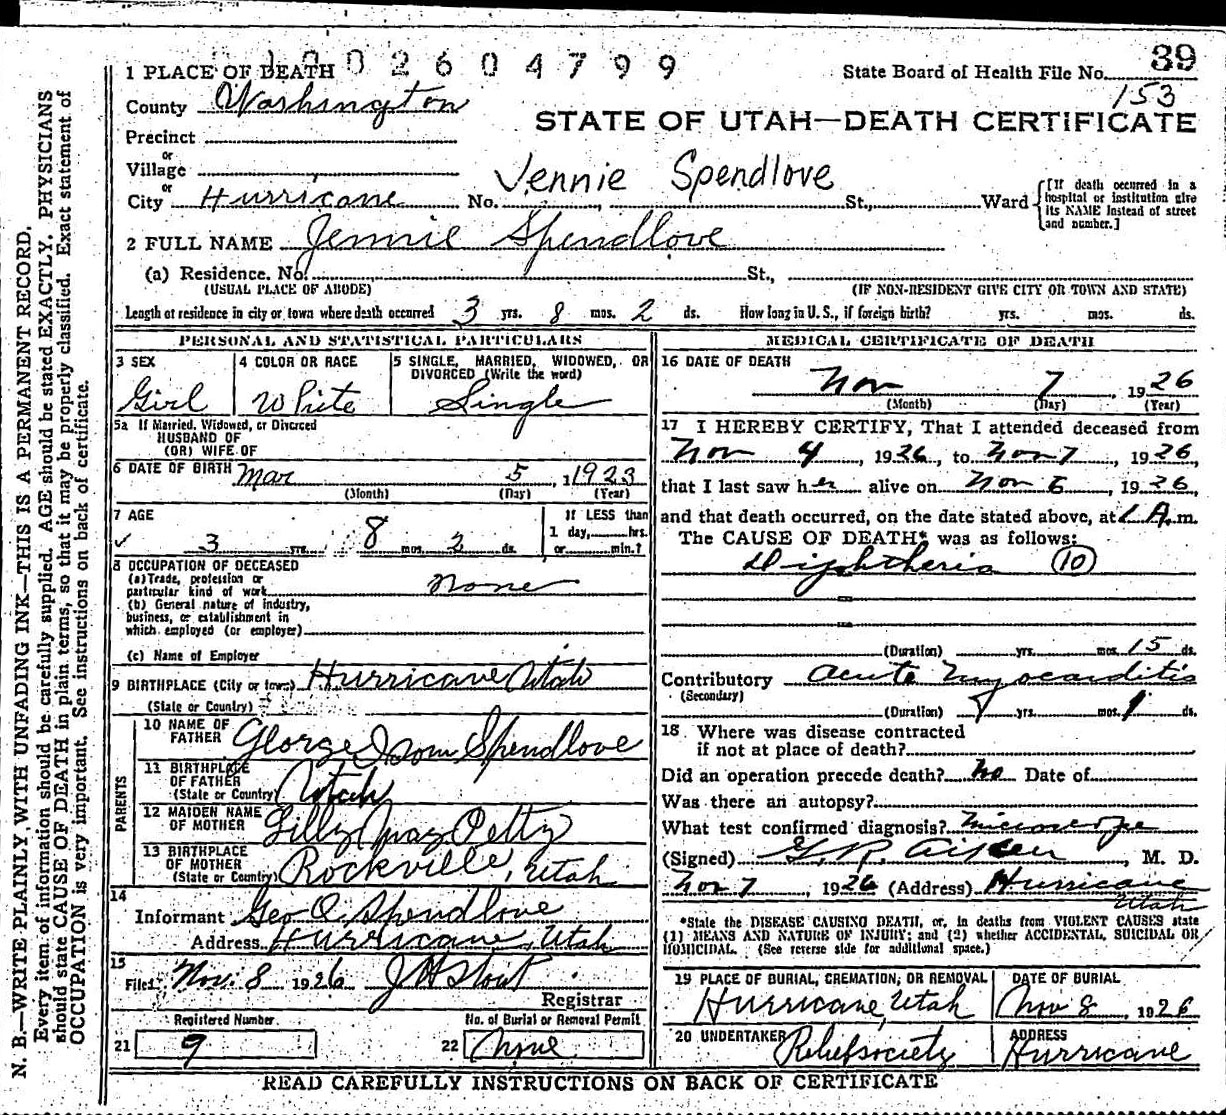 1 9 0 2 6 0 4 7 9 9
39
1 PLACE OF DEATH
State Board of Health File No.
153
County Washington
STATE OF UTAH—DEATH CERTIFICATE
Precinct
or
Village
Jennie Spendlove
or
City Hurricane No. St., Ward
[If death occurred in a hospital or institution give its NAME instead of street and number.]
2 FULL NAME Jennie Spendlove
(a) Residence. No. St.,
(USUAL PLACE OF ABODE) (IF NON-RESIDENT GIVE CITY OR TOWN AND STATE)
Length of residence in city or town where death occurred 3 yrs. 8 mos. 2 ds. How long in U. S., if foreign birth? yrs. mos. ds.
PERSONAL AND STATISTICAL PARTICULARS
3 SEX
Girl
4 COLOR OR RACE
White
5 SINGLE, MARRIED, WIDOWED, OR
DIVORCED (Write the word)
Single
5a If Married, Widowed, or Divorced
HUSBAND OF
(OR) WIFE OF
6 DATE OF BIRTH Mar 5, 1923
(Month) (Day) (Year)
7 AGE
3 yrs. 8 mos. 2 ds.
If LESS than
1 day, hrs.
or min.?
8 OCCUPATION OF DECEASED
(a) Trade, profession or
particular kind of work None
(b) General nature of industry,
business, or establishment in
which employed (or employer)
(c) Name of Employer
9 BIRTHPLACE (City or town) Hurricane Utah
(State or Country)
PARENTS
10 NAME OF
FATHER George Isom Spendlove
11 BIRTHPLACE
OF FATHER
(State or Country) Utah
12 MAIDEN NAME
OF MOTHER Lilly May Petty
13 BIRTHPLACE
OF MOTHER
(State or Country) Rockville, Utah
14
Informant Geo O. Spendlove
Address Hurricane, Utah
15
Filed Nov. 8 1926 J H Stout
Registrar
Registered Number No. of Burial or Removal Permit
21 9 22 None
MEDICAL CERTIFICATE OF DEATH
16 DATE OF DEATH
Nov 7, 1926
(Month) (Day) (Year)
17 I HEREBY CERTIFY, That I attended deceased from
Nov 4, 1926, to Nov 7, 1926,
that I last saw her alive on Nov 6, 1926,
and that death occurred, on the date stated above, at 1 A.m.
The CAUSE OF DEATH* was as follows:
Diphtheria (10)
(Duration) yrs. mos. 15 ds.
Contributory Acute Myocarditis
(Secondary)
(Duration) yrs. mos. 1 ds.
18 Where was disease contracted
if not at place of death?
Did an operation precede death? no Date of
Was there an autopsy?
What test confirmed diagnosis? microscope
(Signed) G. R. Aiken, M. D.
Nov 7, 1926 (Address) Hurricane
Utah
*State the DISEASE CAUSING DEATH, or, in deaths from VIOLENT CAUSES state
(1) MEANS AND NATURE OF INJURY; and (2) whether ACCIDENTAL, SUICIDAL OR
HOMICIDAL. (See reverse side for additional space.)
19 PLACE OF BURIAL, CREMATION, OR REMOVAL
Hurricane, Utah
DATE OF BURIAL
Nov 8, 1926
20 UNDERTAKER
Relief society
ADDRESS
Hurricane
READ CAREFULLY INSTRUCTIONS ON BACK OF CERTIFICATE
N. B.—WRITE PLAINLY WITH UNFADING INK—THIS IS A PERMANENT RECORD.
Every item of information should be carefully supplied. AGE should be stated EXACTLY. PHYSICIANS
should state CAUSE OF DEATH in plain terms, so that it may be properly classified. Exact statement of
OCCUPATION is very important. See instructions on back of certificate.